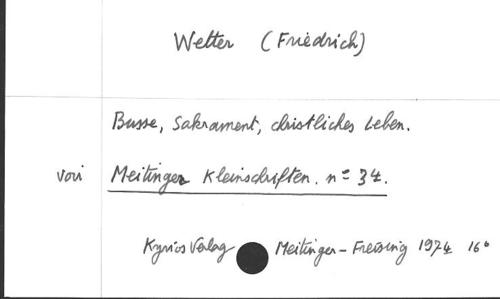 Wetter (Friedrich)
Busse, Sakrament, christliches Leben.
voir Meitinger Kleinschriften. n° 34.
Kyrios Verlag Meitinger-Freising 1974 16°